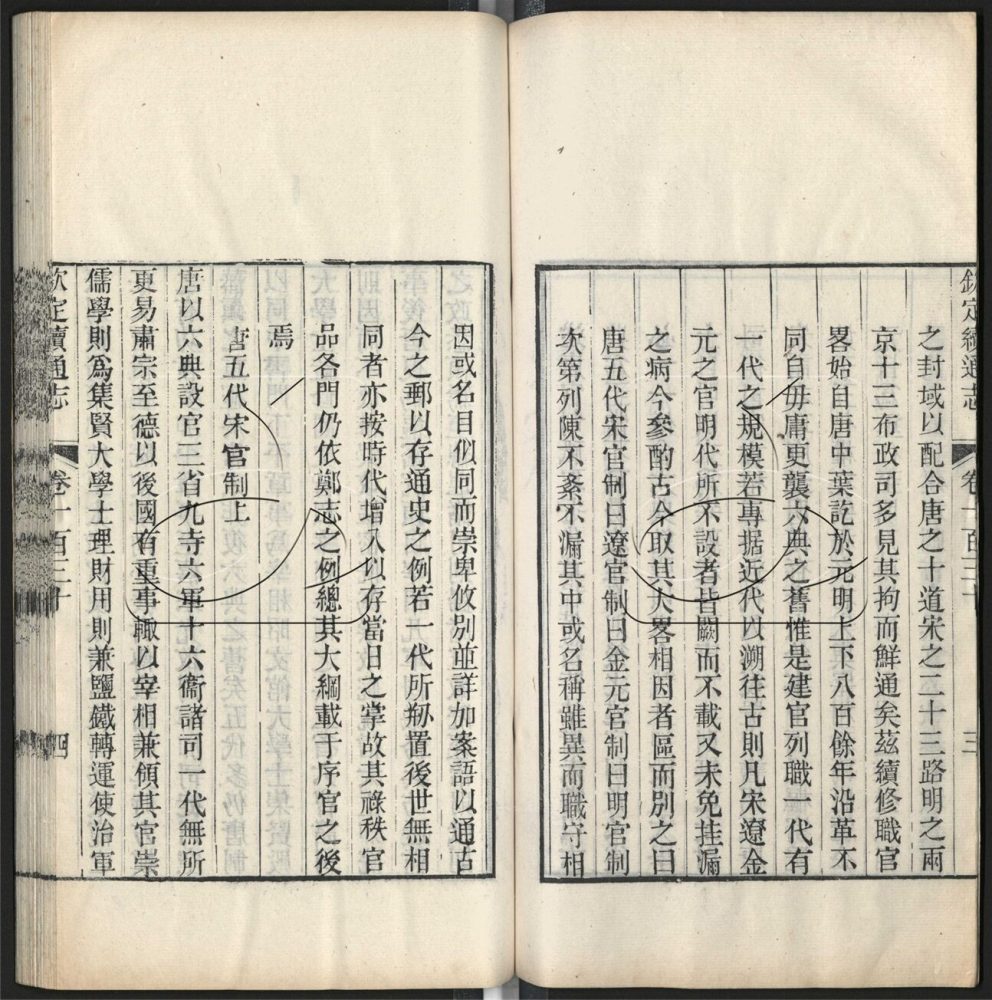 欽定續通志 卷一百三十 三
之封域以配合唐之十道宋之二十三路明之兩
京十三布政司多見其拘而鮮通矣茲續修職官
畧始自唐中葉訖於元明上下八百餘年沿革不
同自毋庸更襲六典之舊惟是建官列職一代有
一代之規模若專据近代以溯往古則凡宋遼金
元之官明代所不設者皆闕而不載又未免挂漏
之病今參酌古今取其大畧相因者區而別之曰
唐五代宋官制曰遼官制曰金元官制曰明官制
次第列陳不紊不漏其中或名稱雖異而職守相
因或名目似同而崇卑攸別並詳加案語以通古
今之郵以存通史之例若一代所剏置後世無相
同者亦按時代增入以存當日之掌故其祿秩官
品各門仍依鄭志之例總其大綱載于序官之後
焉
唐五代宋官制上
唐以六典設官三省九寺六軍十六衞諸司一代無所
更易肅宗至德以後國有重事輙以宰相兼領其官崇
儒學則爲集賢大學士理財用則兼鹽鐵轉運使治軍
欽定續通志 卷一百三十 四